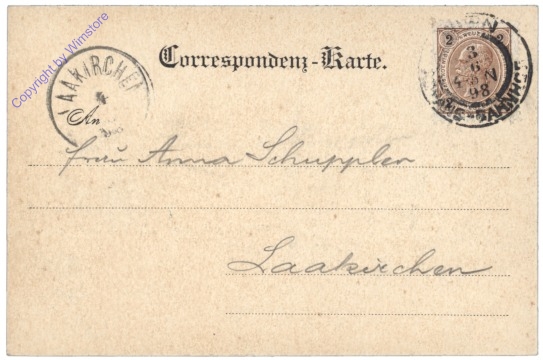 Copyright by Wimstore
Correspondenz-Karte.
LAAKIRCHEN
4
An
2 2
WIEN
3
6
98
BAHNHOF
Frau Anna Schuppler
Laakirchen